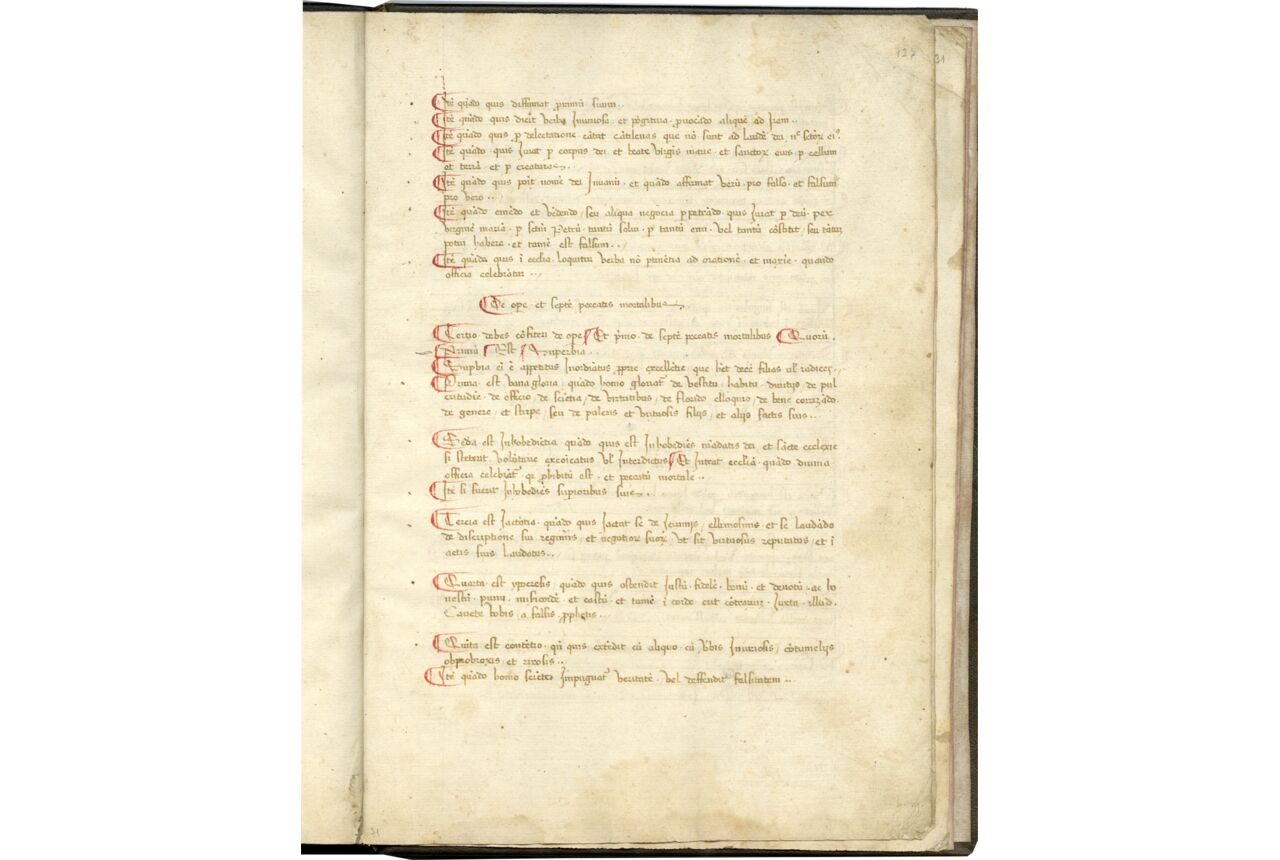 127 31
Itē quādo quis diffamat proximū suum..
Itē quādo quis dicit verba Iniuriosa et prouocādo aliquē ad Iram..
Itē quādo quis p delectatione cātat cātilenas que nō sunt ad laudē dei nec sctōr ei9
Itē quādo quis Iurat p corpus dei et beate virgīs marie et sanctor eius p cellum
et terrā et p creaturas.
Itē quādo quis poit nomē dei Inuanū et quādo affirmat verū pro falso et falsum
pro vero..
Itē quādo emēdo et vēdendo seu aliqua negocia ppetrādo quis Iurat p deū per
virginē mariā p sctm Petrū tantū solui p tantū emi vel tantū cōstitit seu tātū
potui habere et tamē est falsum..
Itē quādo quis ī ecclīa loquitur verba nō ptinētia ad orationē et maxīe quando
officia celebrātur..
De ope et septē peccatis mortalibus
Tertio debes cōfiteri de ope Et pīmo de septē peccatis mortalibus Quorū
Primū Est Superbia
Supbia ēī ē appetitus Inordīatus pprie excellētie que hēt decē filias ul radices.
Prima est vana gloria quādo homo gloriat de vestitu habitu diuitijs de pul
critudīe de officio de sciētia de virtutibus de florido elloquio de bene corizādo
de genere et stirpe seu de pulcris et virtuosis filijs et alijs factis suis..
Secda est Inhobediētia quādo quis est Inhobediēs mādatis dei et sācte ecclexie
si steterit volūtarie excōicatus vl Interdictus Et Intrat ecclīā quādo diuina
officia celebrāt qr phibitū est et peccatū mortale..
Itē si fuerit Inhobediēs supioribus suis..
Tercia est Iactātia quādo quis Iactat se de Ieiunijs ellimosinis et se laudādo
de discriptione sui regimīs et negotior suor ut sit virtuosus reputatus et ī
actis suis laudatus..
Quarta est ypocresis quādo quis ostendit Iustū fidelē bonū et deuotū ac ho
nestū purū mīsicordē et castū et tamē ī corde erit cōtrariū Iuxta illud
Cauete vobis a falsis pphetis
Quīta est contētio qn quis cōtēdit cū aliquo cū vbis Iniuriosis cōtumelijs
obprobroxis et rixosis..
Itē quādo homo sciēter Impugnat veritatē vel deffendit falsitatem..
31